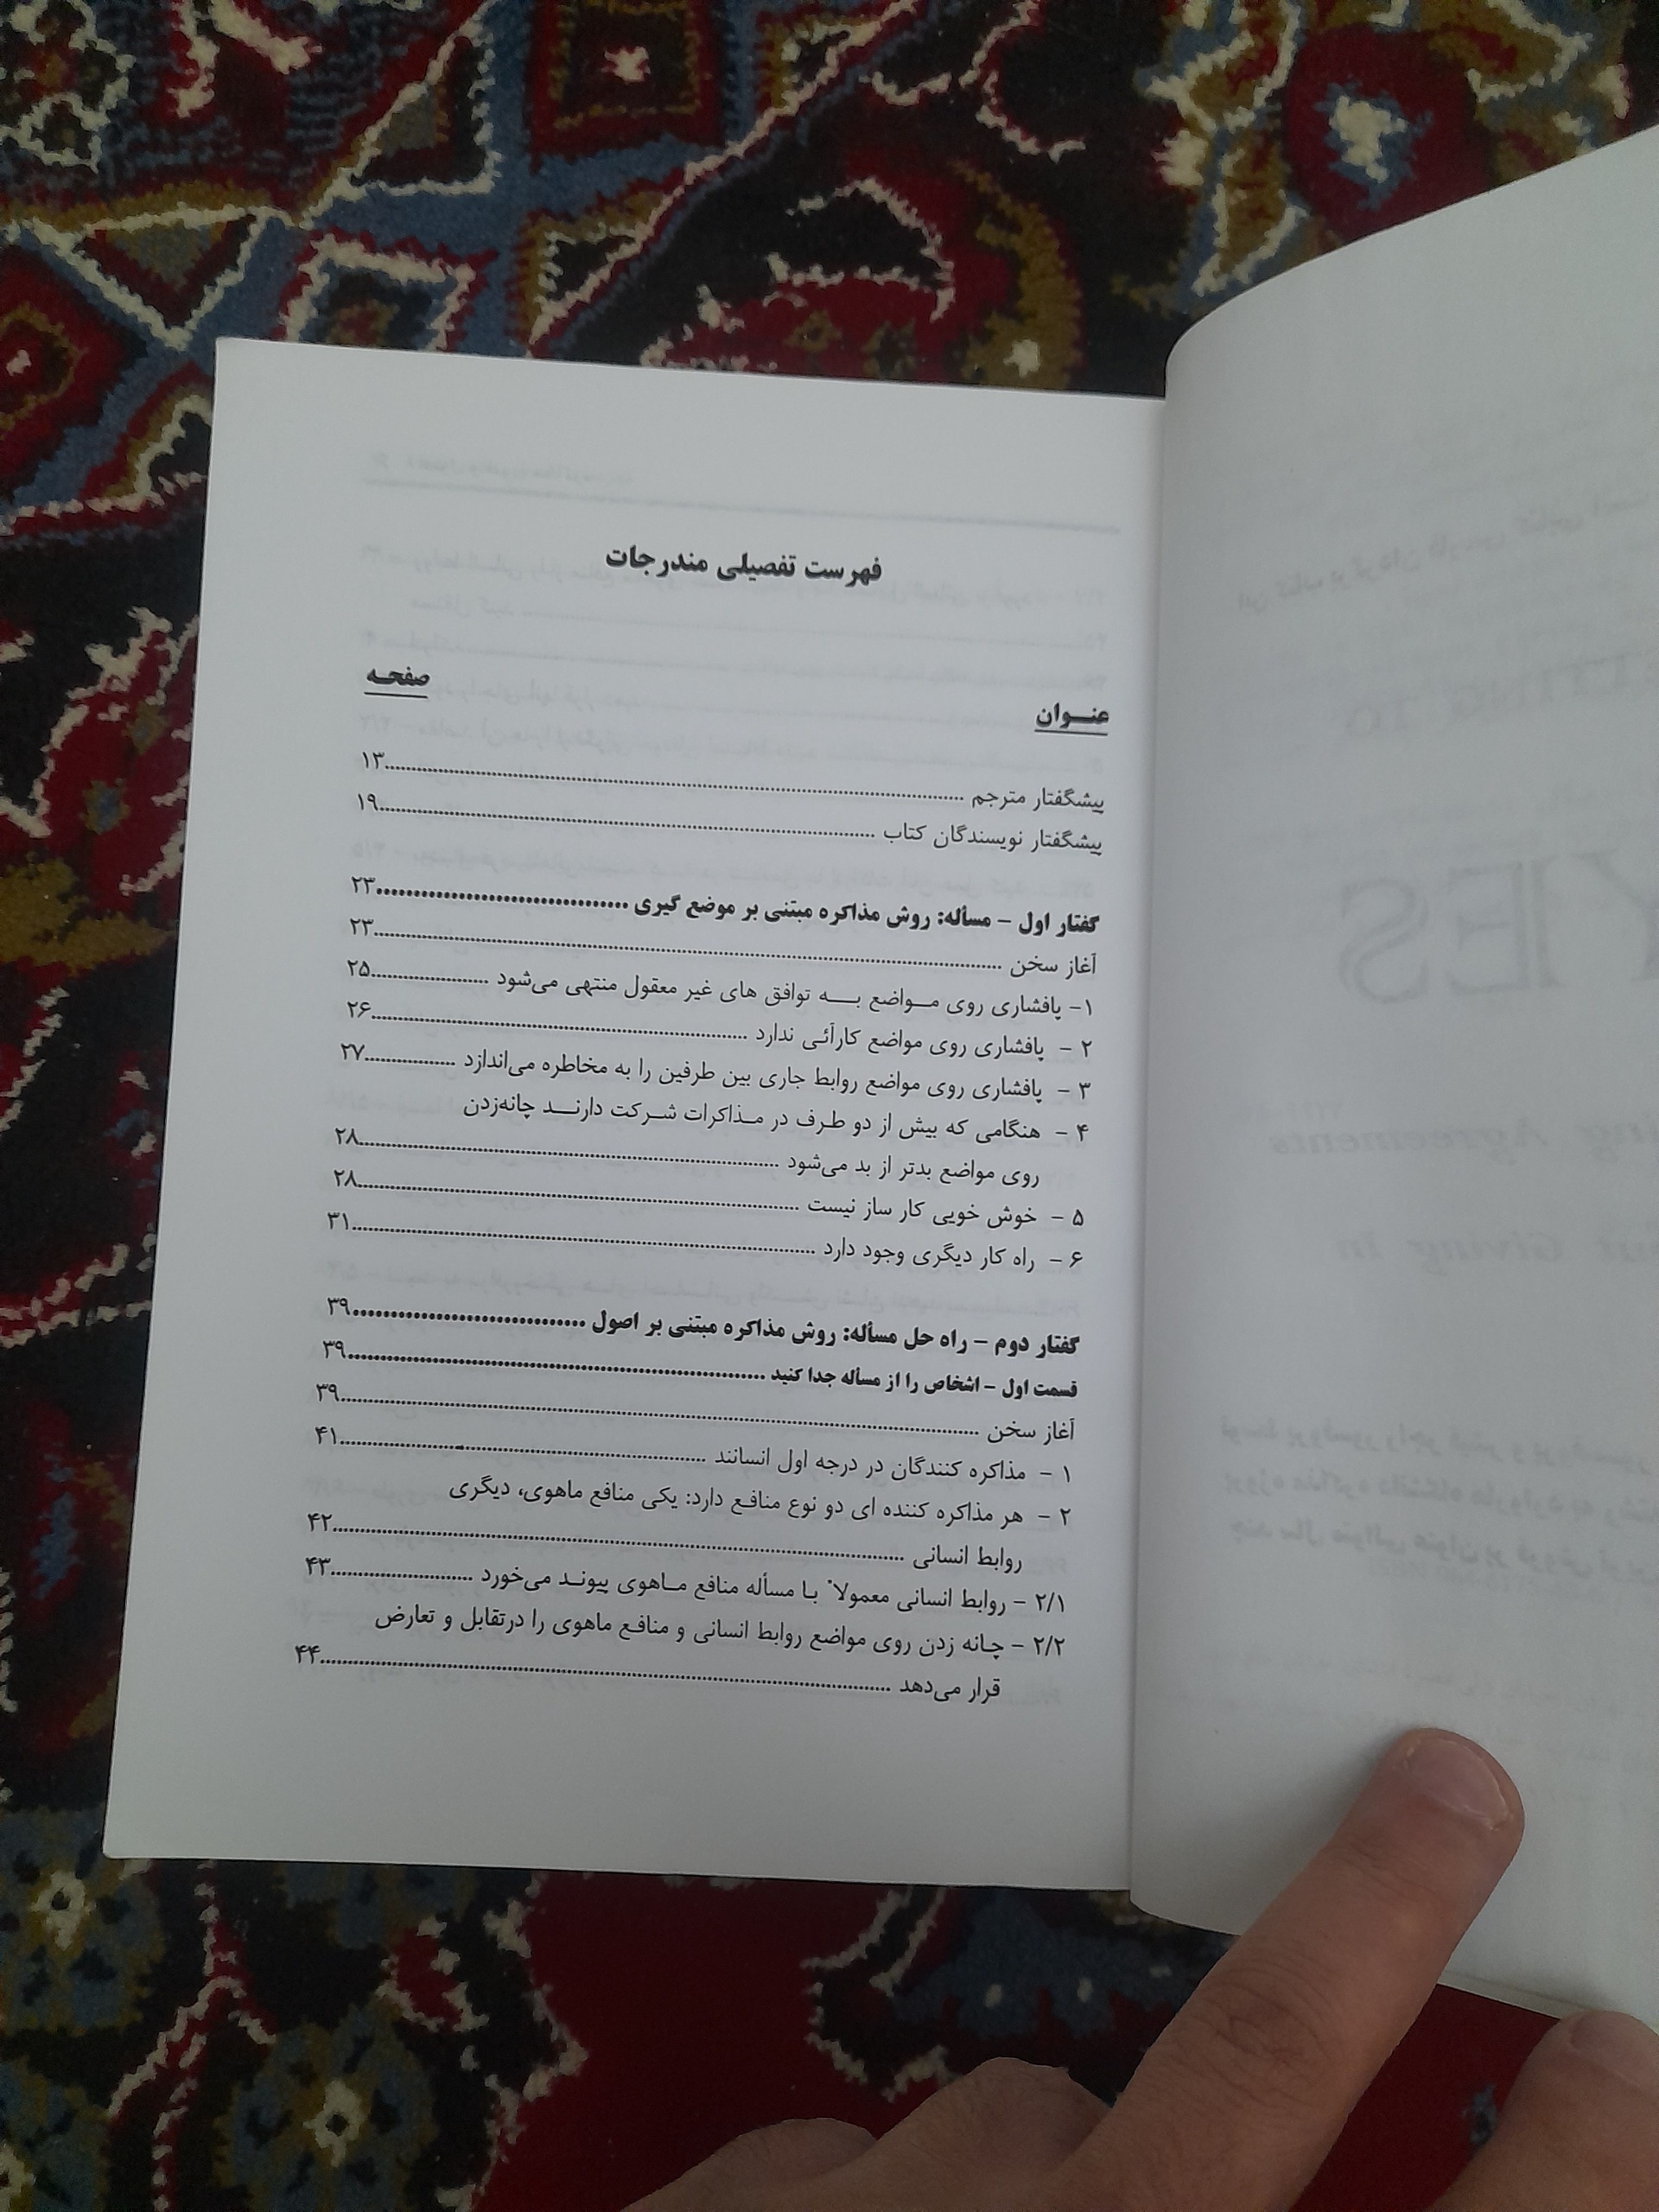 فهرست تفصیلی مندرجات
عنـــوان
صفحـه
پیشگفتار مترجم ................ ۱۳
پیشگفتار نویسندگان کتاب ................ ۱۹
گفتار اول – مسأله: روش مذاکره مبتنی بر موضع گیری ................ ۲۳
آغاز سخن ................ ۲۳
۱- پافشاری روی مـواضع بـه توافق های غیر معقول منتهی می‌شود ................ ۲۵
۲ - پافشاری روی مواضع کارآئی ندارد ................ ۲۶
۳ - پافشاری روی مواضع روابط جاری بین طرفین را به مخاطره می‌اندازد ................ ۲۷
۴ - هنگامی که بیش از دو طرف در مـذاکرات شـرکت دارنـد چانه‌زدن
روی مواضع بدتر از بد می‌شود ................ ۲۸
۵ - خوش خویی کار ساز نیست ................ ۲۸
۶ - راه کار دیگری وجود دارد ................ ۳۱
گفتار دوم – راه حل مسأله: روش مذاکره مبتنی بر اصول ................ ۳۹
قسمت اول – اشخاص را از مسأله جدا کنید ................ ۳۹
آغاز سخن ................ ۳۹
۱ - مذاکره کنندگان در درجه اول انسانند ................ ۴۱
۲ - هر مذاکره کننده ای دو نوع منافع دارد: یکی منافع ماهوی، دیگری
روابط انسانی ................ ۴۲
۲/۱ – روابط انسانی معمولاً با مسأله منافع مـاهوی پیونـد می‌خورد ................ ۴۳
۲/۲ – چـانه زدن روی مواضع روابط انسانی و منافـع ماهوی را درتقابل و تعارض
قرار می‌دهد ................ ۴۴